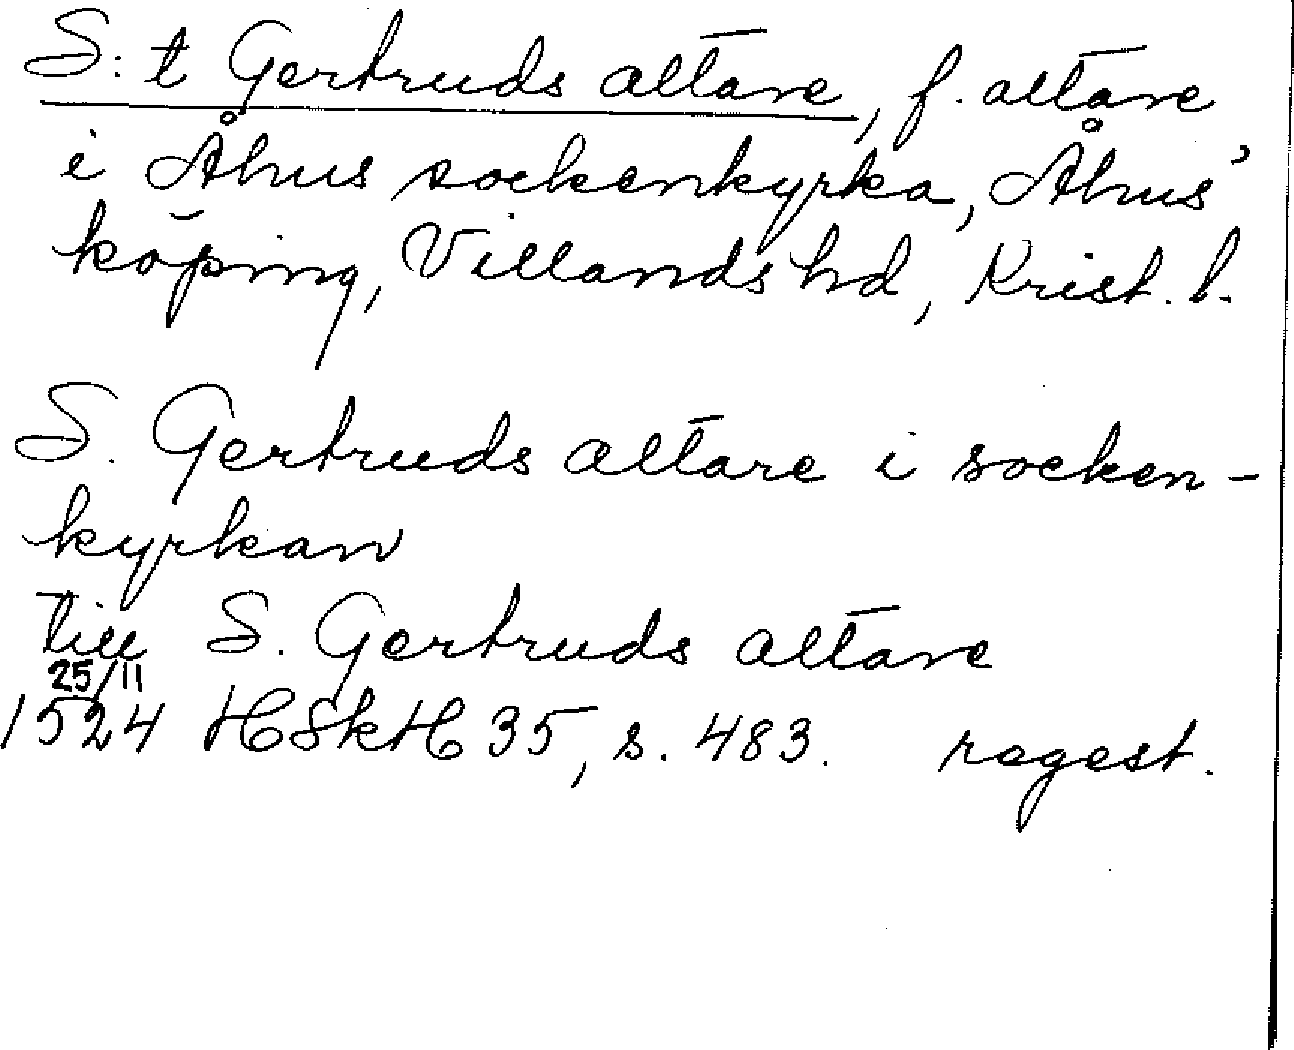 S:t Gertruds altare, f. altare
i Åhus sockenkyrka, Åhus'
köping, Villands hd, Krist. l.
S. Gertruds altare i socken-
kyrkan
till S. Gertruds altare
25/11
1524 HSkH 35, s. 483. regest.